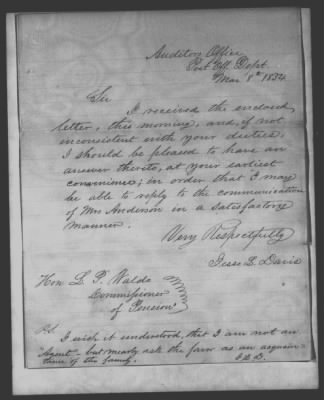 Auditors Office
Post Off. Dept.
Mar 8th 1854
Sir
I received the enclosed
letter, this morning, and, if not
inconsistent with your duties,
I should be pleased to have an
answer thereto, at your earliest
convenience; in order that I may
be able to reply to the communication
of Mrs Anderson in a satisfactory
manner.
Very Respectfully
Jesse L. Davis
Hon L. P. Waldo
Commissioner
of Pensions
I wish it understood, that I am not an
"Agent" - but mearly ask the favor as an acquain-
tance of the family.